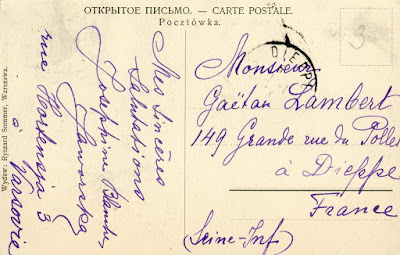 ОТКРЫТОЕ ПИСЬМО. — CARTE POSTALE.
Pocztówka.
Wydaw: Ryszard Sommer, Warszawa.
Mes sincères
Salutations
Josephine Blanche
Jaworska
rue Hortensja 3
à
Varsovie
DIEPPE
3
Monsieur
Gaëtan Lambert
149 Grande rue du Pollet
à Dieppe
France
(Seine-Inf)